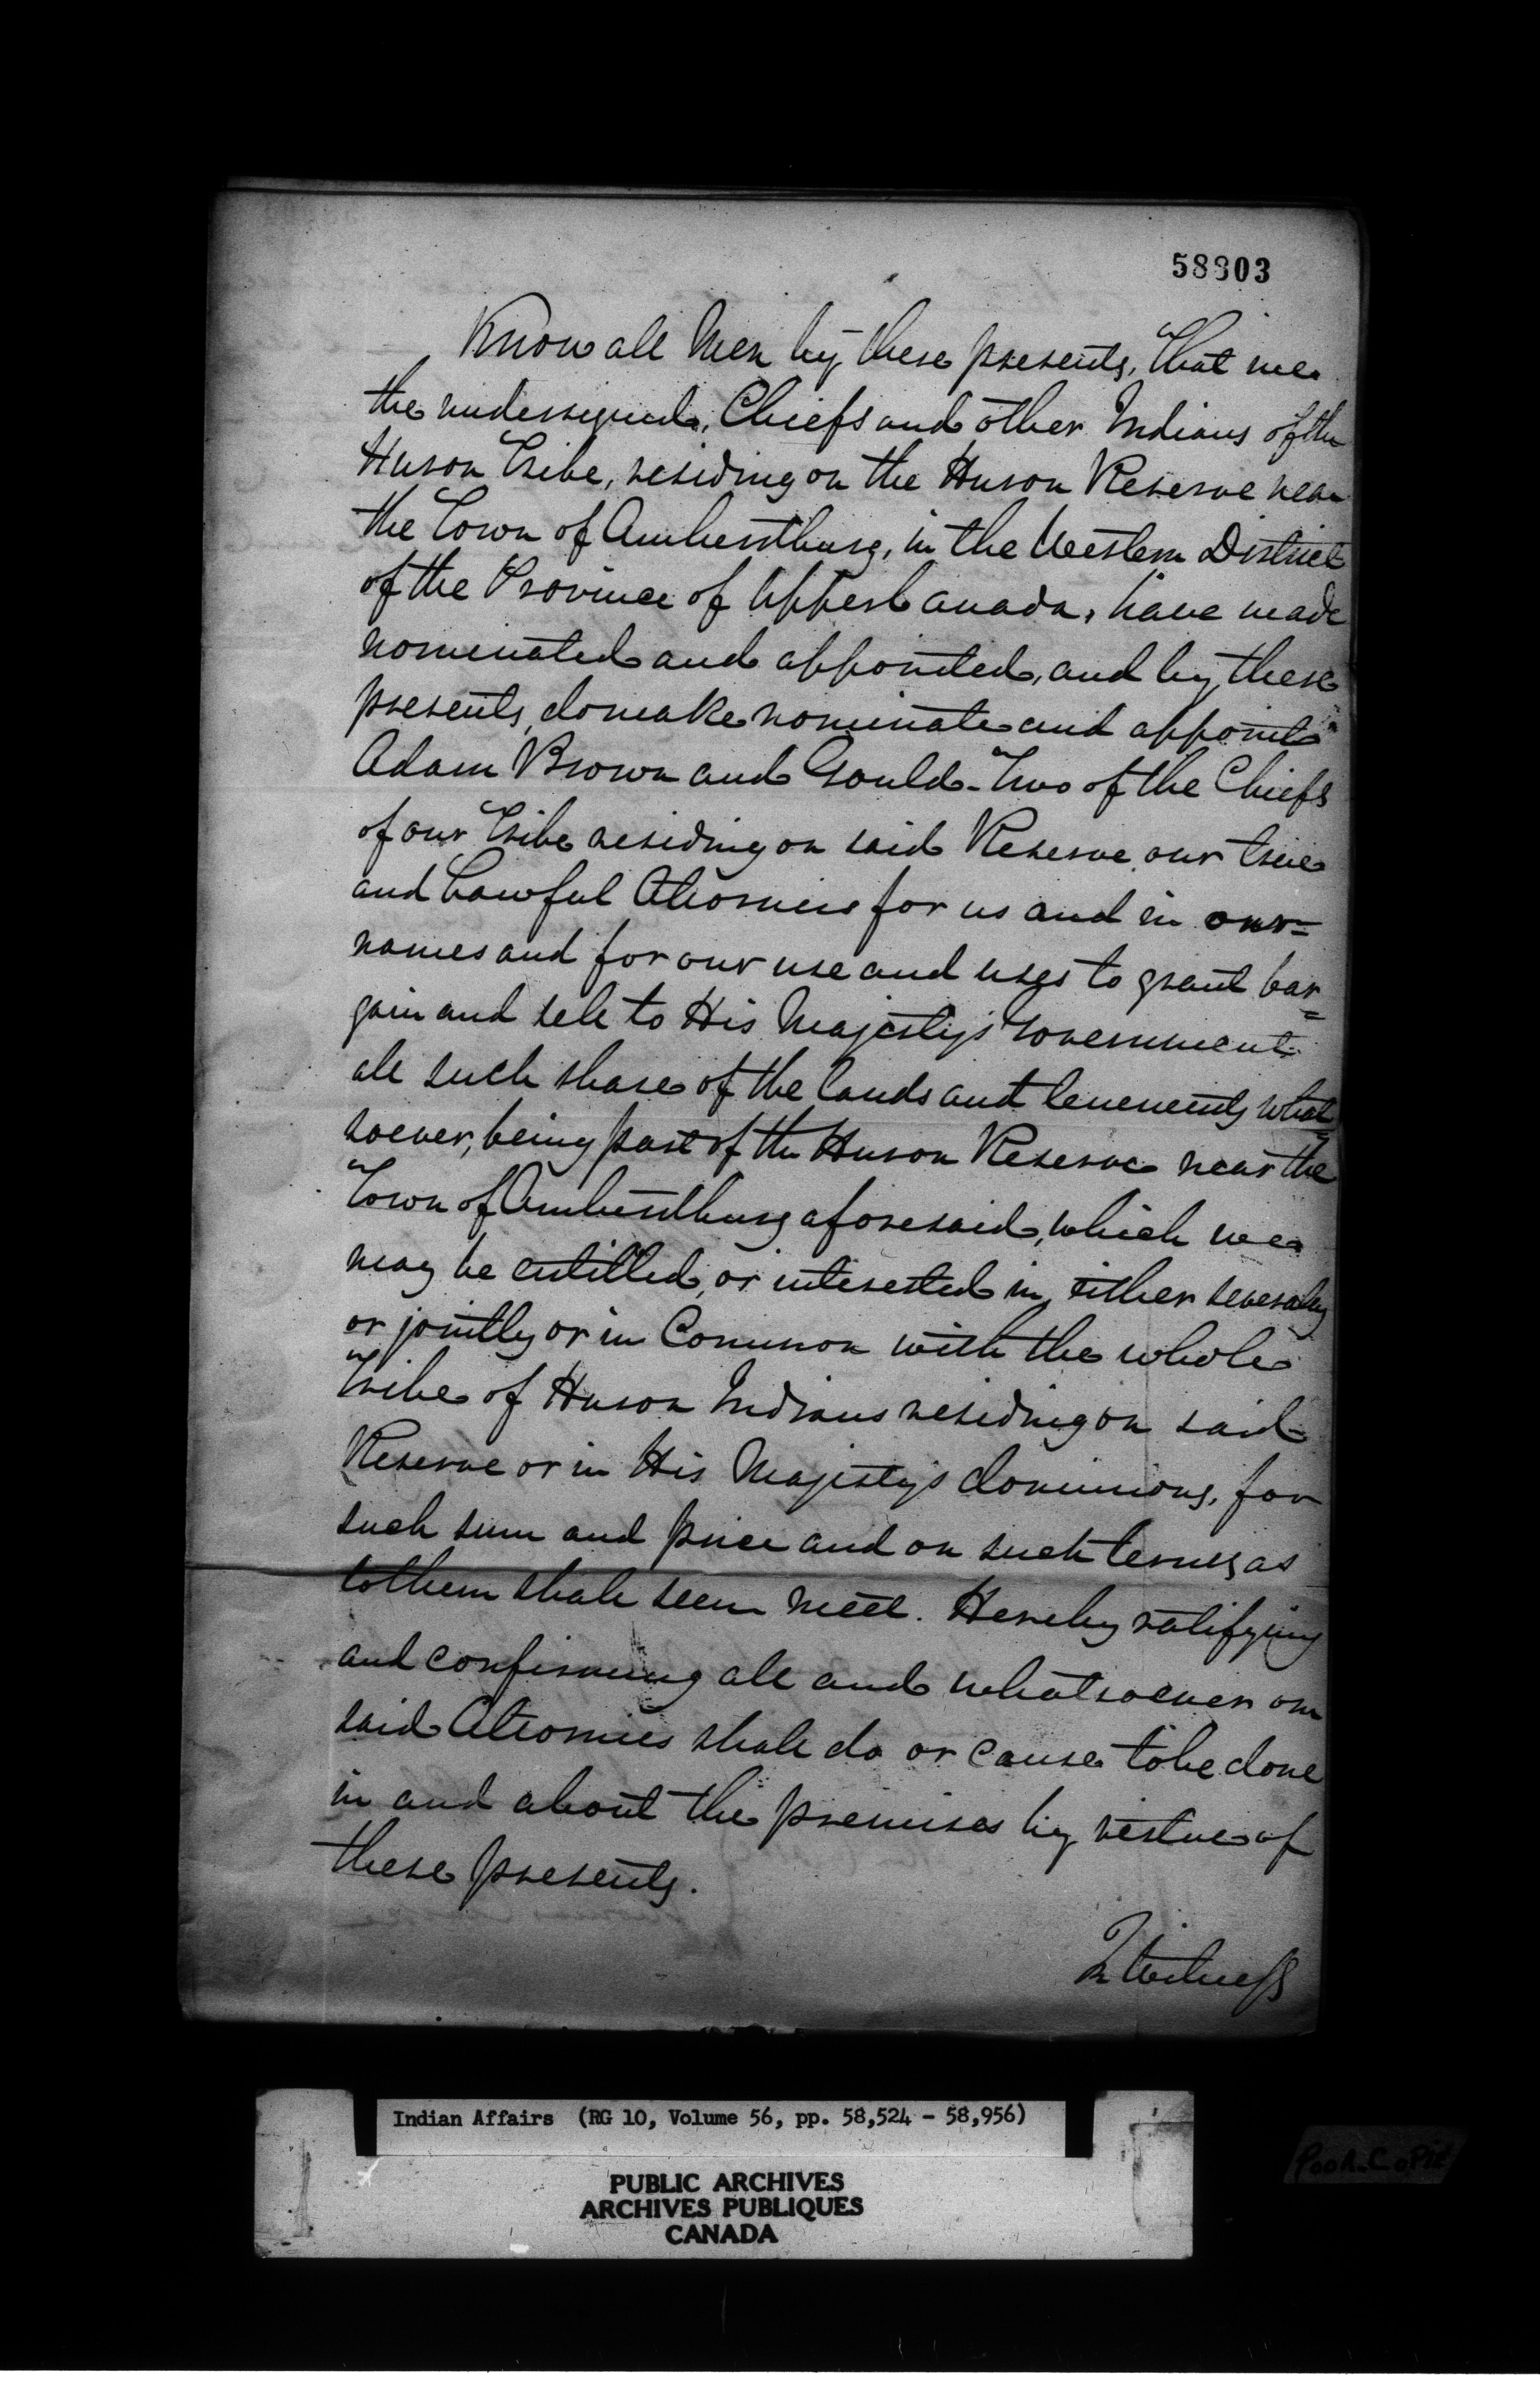 58803
Know all Men by these presents, That we
the undersigned, Chiefs and other Indians of the
Huron Tribe, residing on the Huron Reserve near
the Town of Amherstburg, in the Western District
of the Province of Upper Canada, have made
nominated and appointed, and by these
presents, do make nominate and appoint
Adam Brown and Gould - Two of the Chiefs
of our Tribe residing on said Reserve our true
and Lawful Attornies for us and in our=
names and for our use and uses to grant bar=
gain and sell to His Majesty's Government
all such share of the lands and tenements what=
soever, being part of the Huron Reserve near the
Town of Amherstburg aforesaid, which we
may be entitled, or interested in, either severally
or jointly or in Common with the whole
Tribe of Huron Indians residing on said
Reserve or in His Majesty's dominions, for
such sum and price and on such terms as
to them shall seem meet. Hereby ratifying
and confirming all and whatsoever our
said Attornies shall do or cause to be done
in and about the premises by virtue of
these presents.
In Witness
Indian Affairs (RG 10, Volume 56, pp. 58,524 - 58,956)
PUBLIC ARCHIVES
ARCHIVES PUBLIQUES
CANADA
Poor Copie